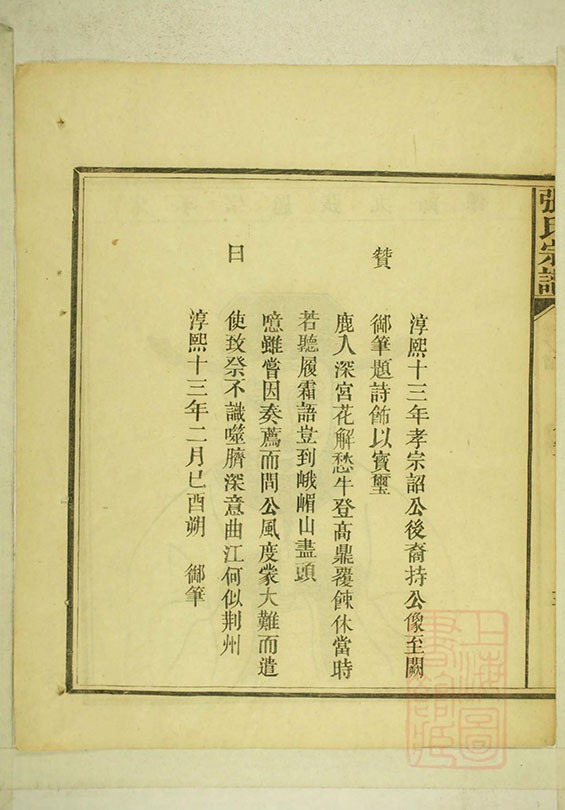 張氏宗譜
淳熙十三年孝宗詔公後裔持公像至闕
御筆題詩飾以寳璽
贊
鹿入深宮花解愁牛登髙鼎覆餗休當時
若聽履霜語豈到峨嵋山盡頭
噫雖嘗因奏薦而問公風度蒙大難而遣
曰
使致祭不識噬臍深意曲江何似荆州
淳熙十三年二月已酉朔 御筆
上海圖